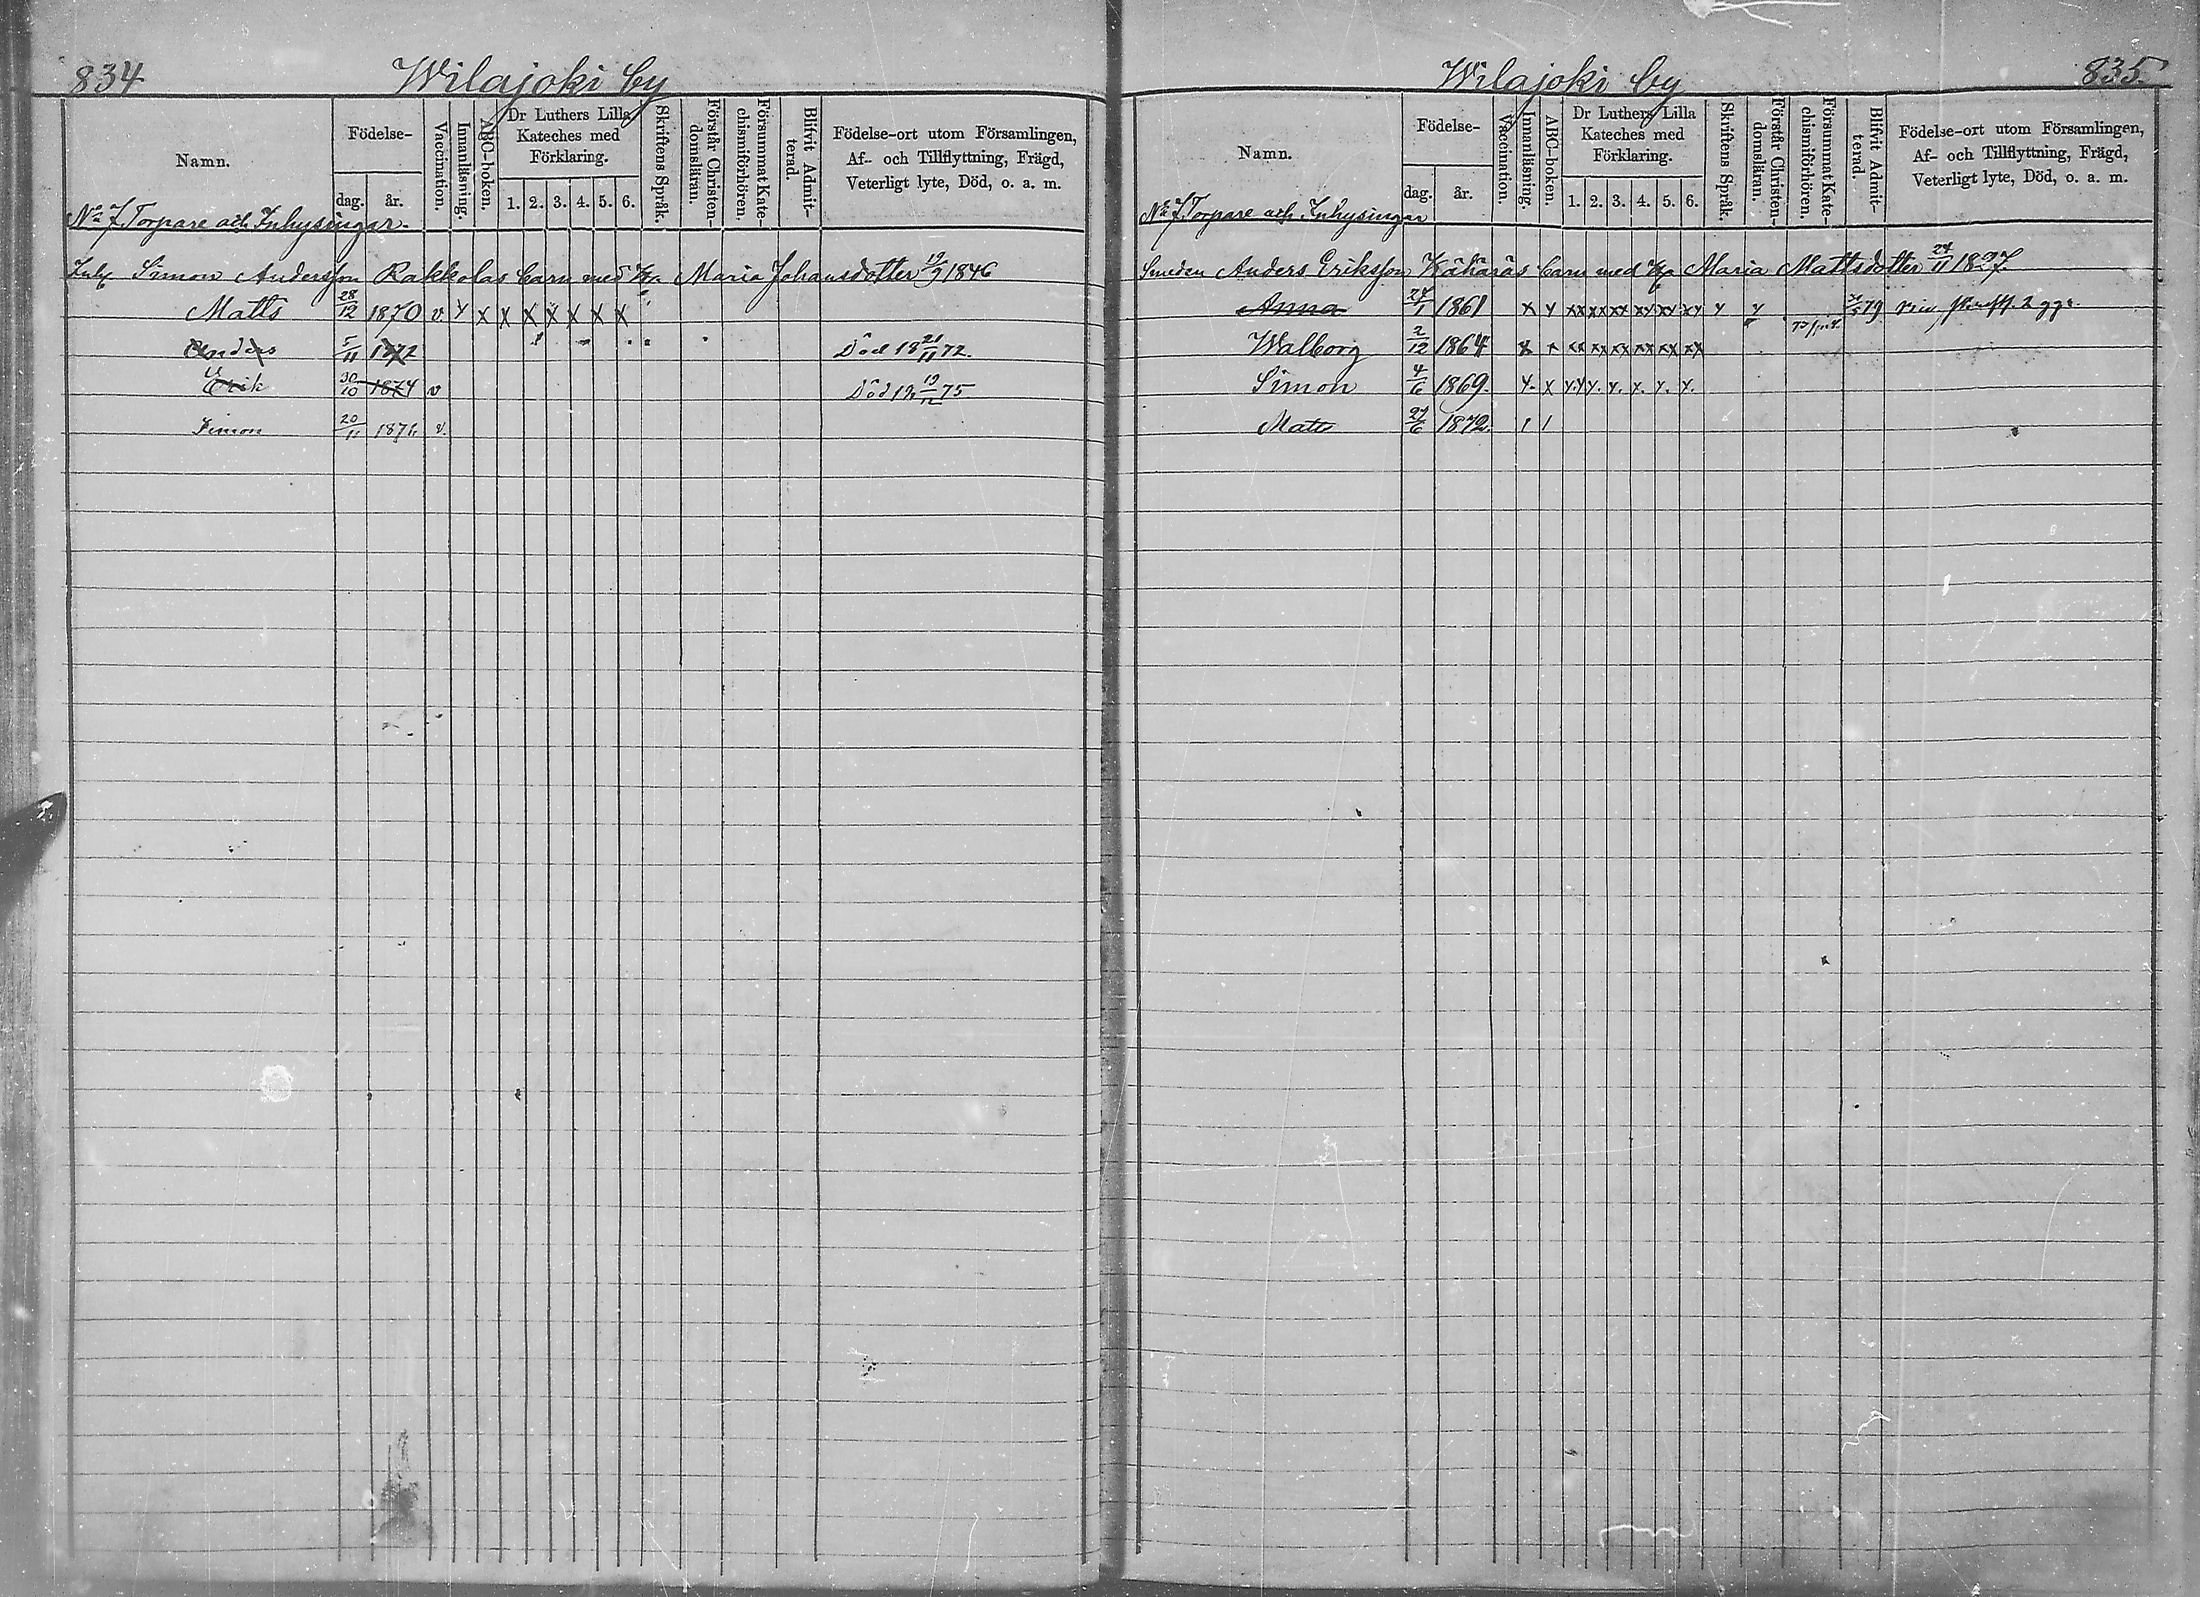 834 Wilajoki by
Namn. Födelse- dag. år. Vaccination. Innanläsning. ABC-boken. Dr Luthers Lilla Kateches med Förklaring. 1. 2. 3. 4. 5. 6. Skriftens Språk. Förstår Christen-domsläran. Försummat Kate-chismiförhören. Blifvit Admit-terad. Födelse-ort utom Församlingen, Af- och Tillflyttning, Frägd, Veterligt lyte, Död, o. a. m.
No 7 Torpare och Inhysingar.
Inh Simon Andersson Rakkolas barn med H:a Maria Johansdotter /9 1846
Matts 28/12 1870 v. y x x x x x x x
Anders 5/11 1872 Död 18 21/11 72.
Erik 30/10 1874 v Död 18 19/12 75
Simon 20/11 1876 v.
Wilajoki by 835.
Namn. Födelse- dag. år. Vaccination. Innanläsning. ABC-boken. Dr Luthers Lilla Kateches med Förklaring. 1. 2. 3. 4. 5. 6. Skriftens Språk. Förstår Christen-domsläran. Försummat Kate-chismiförhören. Blifvit Admit-terad. Födelse-ort utom Församlingen, Af- och Tillflyttning, Frägd, Veterligt lyte, Död, o. a. m.
No 7. Torpare och Inhysingar
Smeden Anders Eriksson Kähäräs barn med H:a Maria Mattsdotter 24/11 1837.
Anna 27/1 1861 x y xx xx xx xy xy xy y y 79 2 ggr.
Walborg 2/12 1864 x x xx xx xx xx xx xx
Simon 4/6 1869. y. x y.y y. y. y. y. y.
Matts 27/6 1872. / /